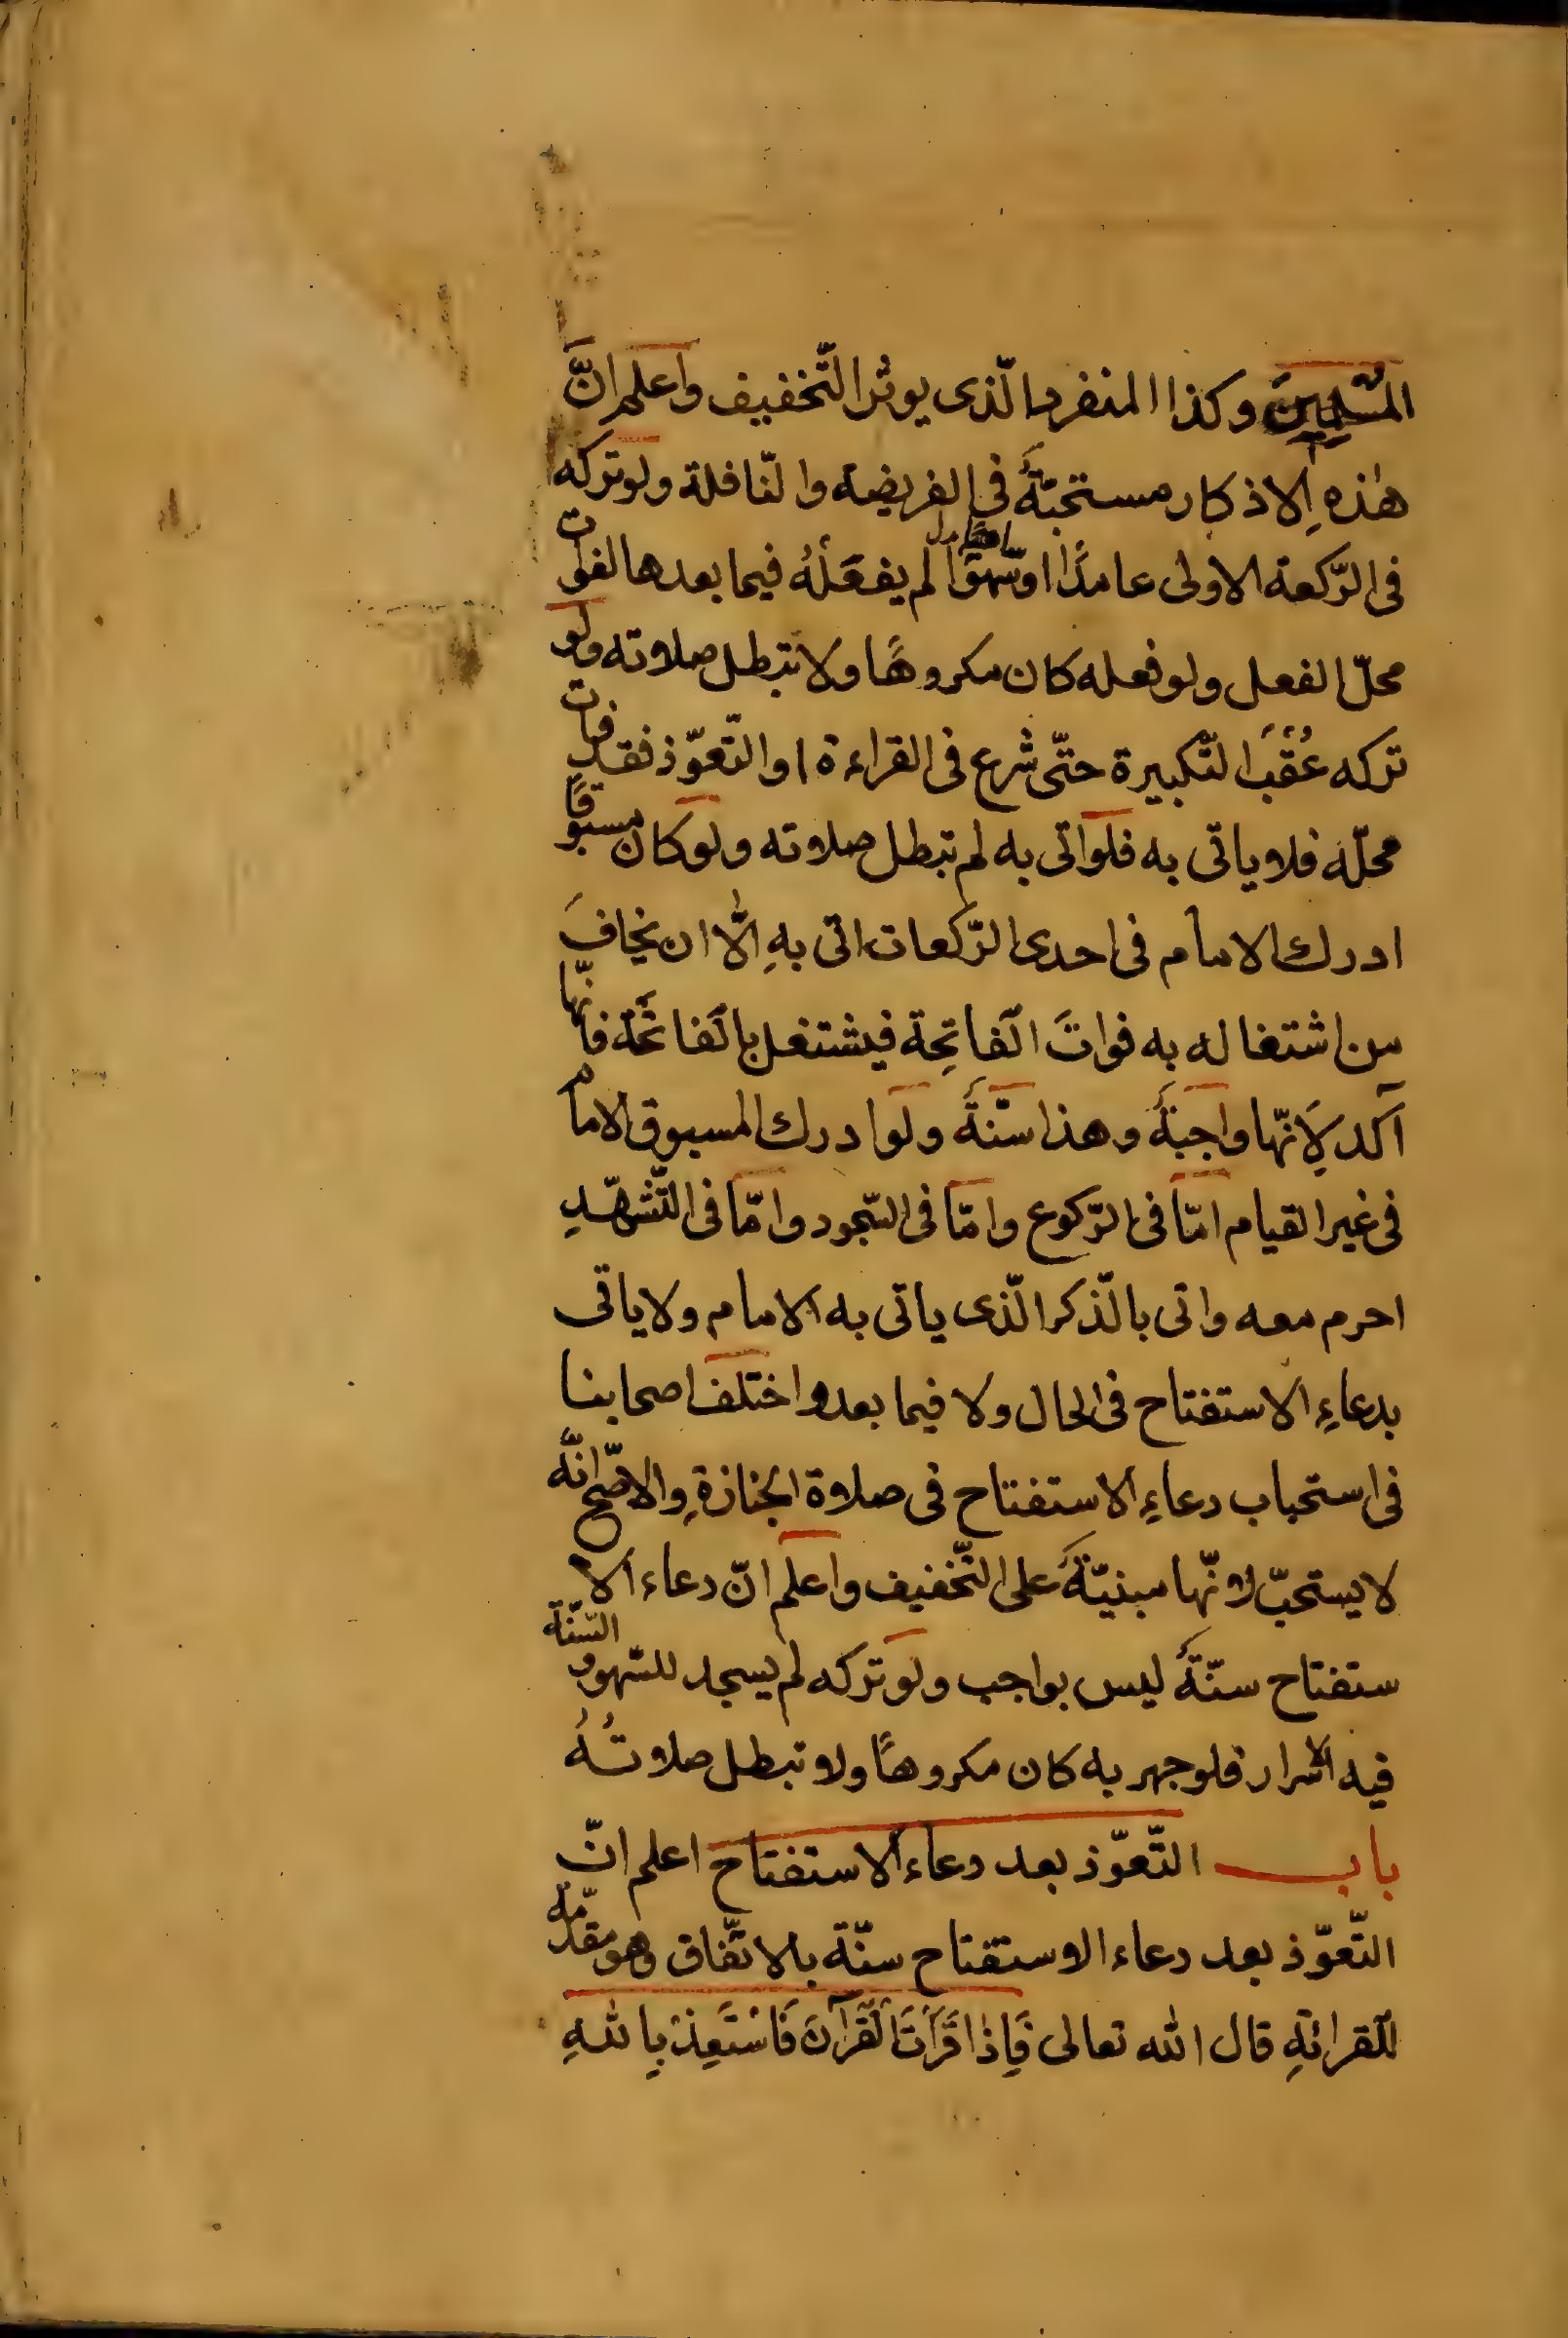 المسْلِمِينَ وكذا المنفرد الّذى يوثر التّخفيف واعلم انَّ
هٰذهِ الاذكار مستحبّةٌ فى الفريضة والنّافلة ولو تركه
فى الرّكعة الاولى عامدًا او سّهوًا لم يفعَلْهُ فيما بعدها لفوات
محلّ الفعل ولو فعله كان مكروهًا ولا تبطل صلاته ولو
تركه عُقَبَ التّكبيرة حتّى شرع فى القراءة او التّعوّذ فقد فات
محلّه فلا ياتى به فلو اتى به لم تبطل صلاته ولو كان مسبوقًا
ادرك الامام فى احدى الرّكعات اتى بهِ الّا ان يخافَ
من اشتغاله به فواتَ الفاتِحة فيشتغل بالفاتحة فانّها
آكد لِانّها واجبةٌ وهذا سنّةٌ ولو ادرك المسبوق الامام
فى غير القيام امّا فى الرّكوع وامّا فى السّجود وامّا فى التّشهّدِ
احرم معه واتى بالذّكر الّذى ياتى به الامام ولا ياتى
بدعاءِ الاستفتاح فى الحال ولا فيما بعد واختلف اصحابنا
فى استحباب دعاءِ الاستفتاح فى صلاة الجنازةِ والاصّح انّه
لا يستحبّ لانّها مبنيّةٌ على التّخفيف واعلم انّ دعاء الا
ستفتاح سنّةٌ ليس بواجب ولو تركه لم يسجد للسّهو و السّنّة
فيه الاسرار فلو جهر به كان مكروهًا ولا تبطل صلاتُهُ
باب التّعوّذ بعد دعاء الاستفتاح اعلم انّ
التّعوّذ بعد دعاء الاستفتاح سنّة بالاتّفاق وهو مقدّمة
للقرائةِ قال الله تعالى فَاِذا قَرَأتَ الْقُرْآنَ فَاسْتَعِذْ بِاللهِ